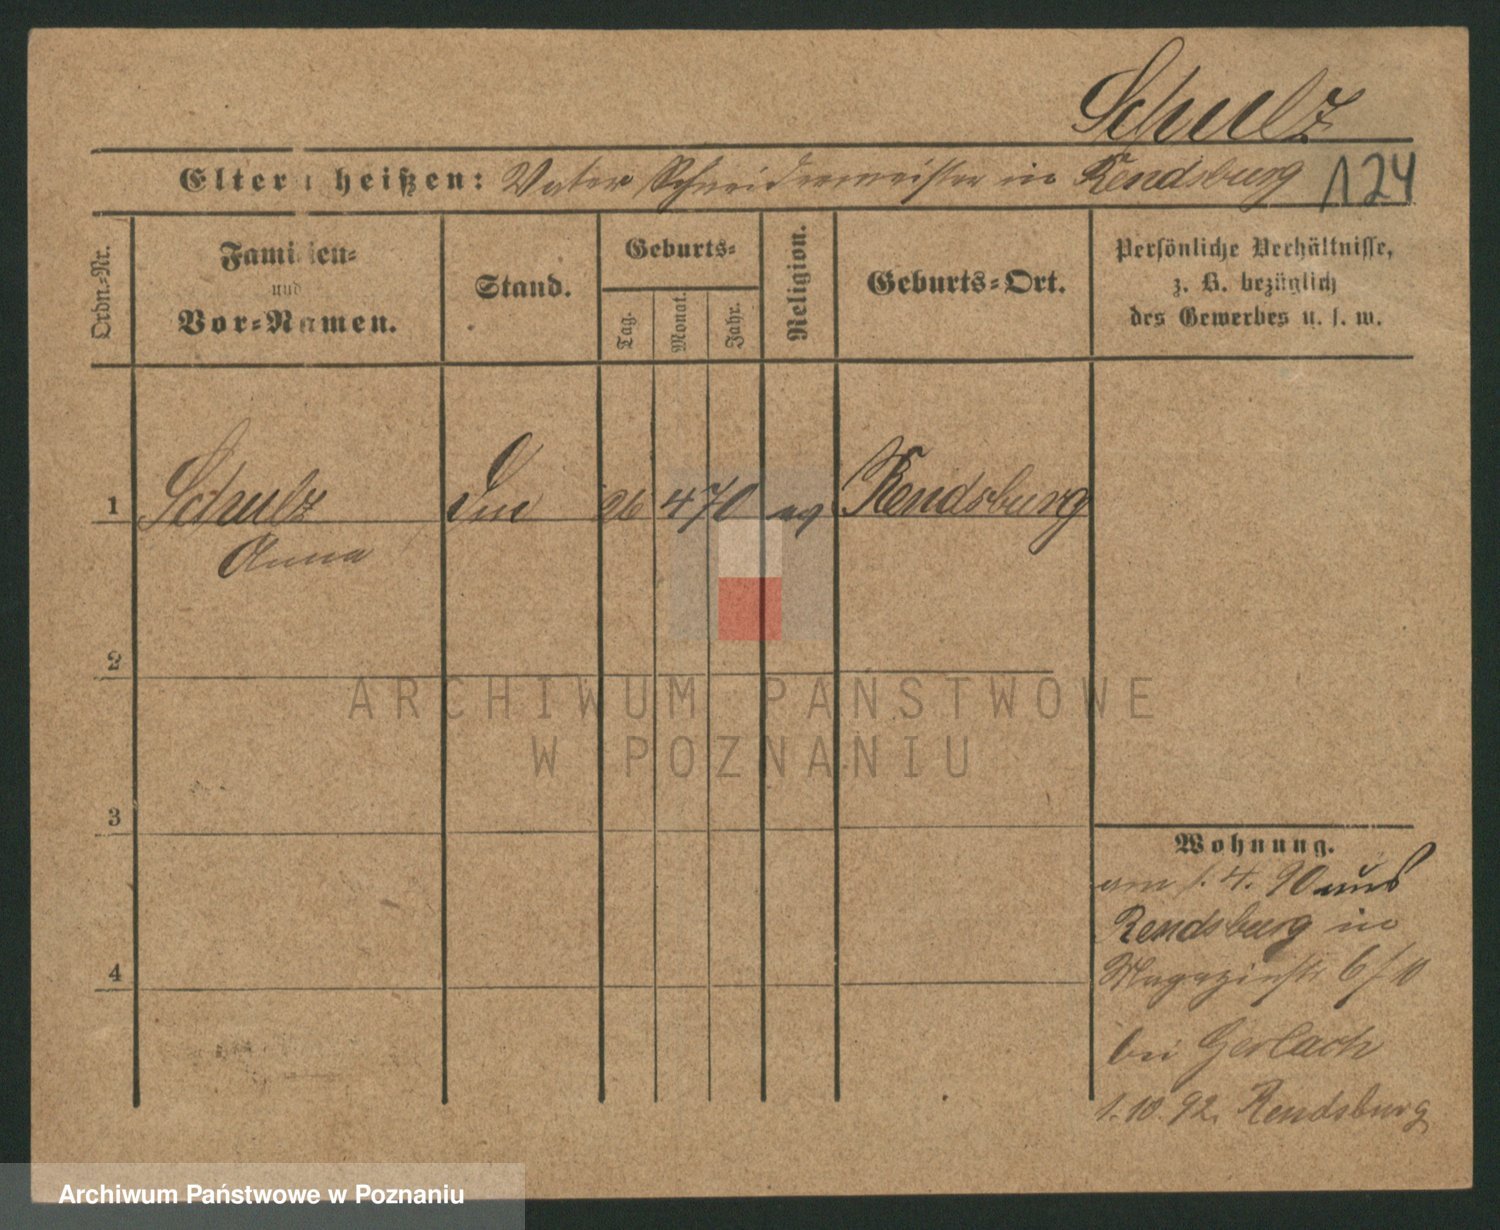 Schulz
Eltern heißen: Vater Schneidermeister in Rendsburg
124
Ordn.-Nr.
Familien-
und
Vor-Namen.
Stand.
Geburts-
Tag.
Monat.
Jahr.
Religion.
Geburts-Ort.
Persönliche Verhältnisse,
z. B. bezüglich
des Gewerbes u. s. w.
1 Schulz 26 4 70 ev Rendsburg
Anna
2
3
4
Wohnung.
am 1. 4. 90 aus
Rendsburg in
Magazinstr 6/10
bei Gerlach
1. 10. 92. Rendsburg
ARCHIWUM PAŃSTWOWE
W POZNANIU
Archiwum Państwowe w Poznaniu